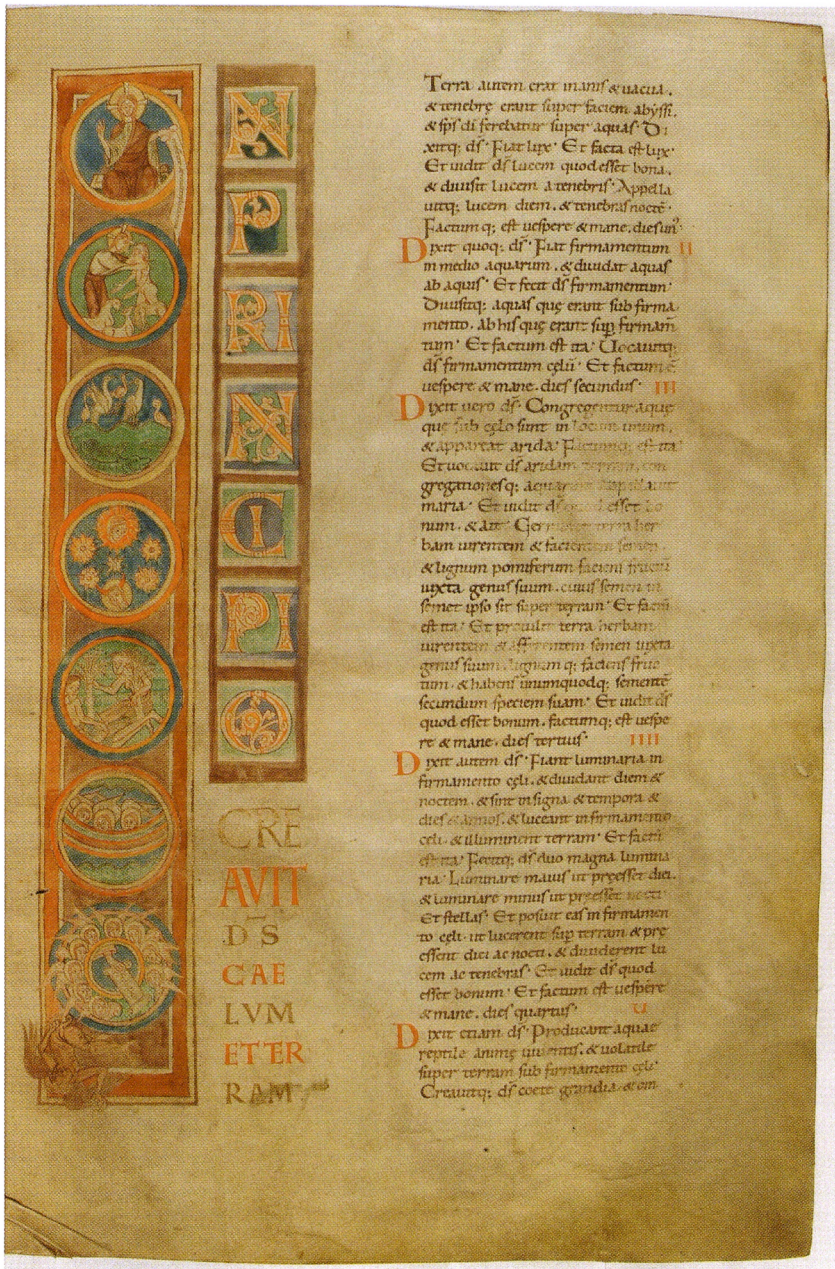 I
N
P
RI
N
CI
PI
O
CRE
AVIT
D̅S
CAE
LVM
ET TER
RAM
Terra autem erat inanis & uacua.
& tenebrę erant super faciem abyssi.
& sp̅s di̅ ferebatur super aquas. Di
xitq; ds̅. Fiat lux. Et facta est lux.
Et uidit ds̅ lucem quod esset bona.
& diuisit lucem a tenebris. Appella
uitq; lucem diem. & tenebras nocte̅.
Factumq; est uespere & mane. dies un'.
Dixit quoq; ds̅. Fiat firmamentum II
in medio aquarum. & diuidat aquas
ab aquis. Et fecit ds̅ firmamentum.
Diuisitq; aquas quę erant sub firma
mento. ab his quę erant sup̅ firmam̅
tum. Et factum est ita. Uocauitq;
ds̅ firmamentum cęlu̅. Et factum e̅
uespere & mane. dies secundus. III
Dixit uero ds̅. Congregentur aquę
quę sub cęlo sunt in locum unum.
& appareat arida. Factumq; est ita
Et uocauit ds̅ aridam terram. con
gregationesq; aquarum appellauit
maria. Et uidit ds̅ quod esset bo
num. & ait. Germinet terra her
bam uirentem & facientem semen.
& lignum pomiferum faciens fructu̅
iuxta genus suum. cuius semen in
semet ipso sit super terram. Et factu̅
est ita. Et protulit terra herbam
uirentem & afferentem semen iuxta
genus suum. lignumq; faciens fruc
tum. & habens unumquodq; semente̅
secundum speciem suam. Et uidit ds̅
quod esset bonum. factumq; est uespe
re & mane. dies tertius. IIII
Dixit autem ds̅. Fiant luminaria in
firmamento cęli. & diuidant diem &
noctem. & sint in signa & tempora &
dies & annos. & luceant in firmamento
celi. & illuminent terram. Et factu̅
est ita. Fecitq; ds̅ duo magna lumina
ria. Luminare maius ut pręesset diei.
& luminare minus ut pręesset nocti.
Et stellas. Et posuit eas in firmamen
to cęli. ut lucerent sup̅ terram & prę
essent diei ac nocti. & diuiderent lu
cem ac tenebras. Et uidit ds̅ quod
esset bonum. Et factum est uespere
& mane. dies quartus. U
Dixit etiam ds̅. Producant aquae
reptile animę uiuentis. & uolatile
super terram sub firmamento cęli.
Creauitq; ds̅ coete grandia. & om